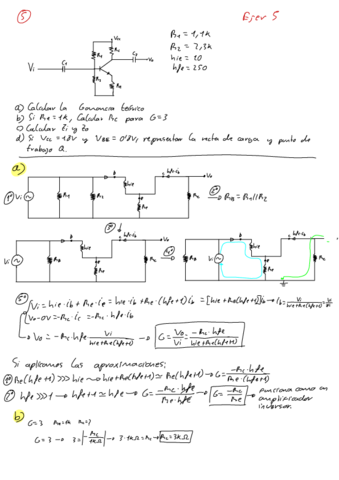 ⑤ Ejer 5
C1 Vi
Vcc
R1 Rc C2 Vo
R2 Re
R1 = 1,1k
R2 = 3,3k
hie = 20
hfe = 250
a) Calcular la Ganancia teórica
b) Si Re = 1k, Calcular Rc para G=3
c) Calcular Zi y Zo
d) Si Vcc = 18V y VBE = 0'8V, representar la recta de carga y punto de
trabajo Q.
a)
Vi hie Re Rc Vo RB = R1//R2
Vi RB hie Re Rc
Vi = hie·ib + Re·ie = hie·ib + Re·(hfe+1)ib = [hie+Re(hfe+1)]ib → ib = Vi/(hie+Re(hfe+1))
Vo-0V = -Rc·ic = -Rc·hfe·ib
Vo = -Rc·hfe Vi/(hie+Re(hfe+1)) → G = Vo/Vi = -Rc·hfe/(hie+Re(hfe+1))
Si aplicamos las aproximaciones:
1º Re(hfe+1) >>> hie → hie+Re(hfe+1) ≈ Re(hfe+1) → G = -Rc·hfe/Re·(hfe+1)
2º hfe >>> 1 → hfe+1 ≈ hfe → G = -Rc·hfe/Re·hfe → G = -Rc/Re → funciona como un
amplificador
inversor
b)
G=3 Re=1k Rc=?
G=3 → 3 = |-Rc/1kΩ| → 3·1kΩ = Rc → Rc = 3kΩ